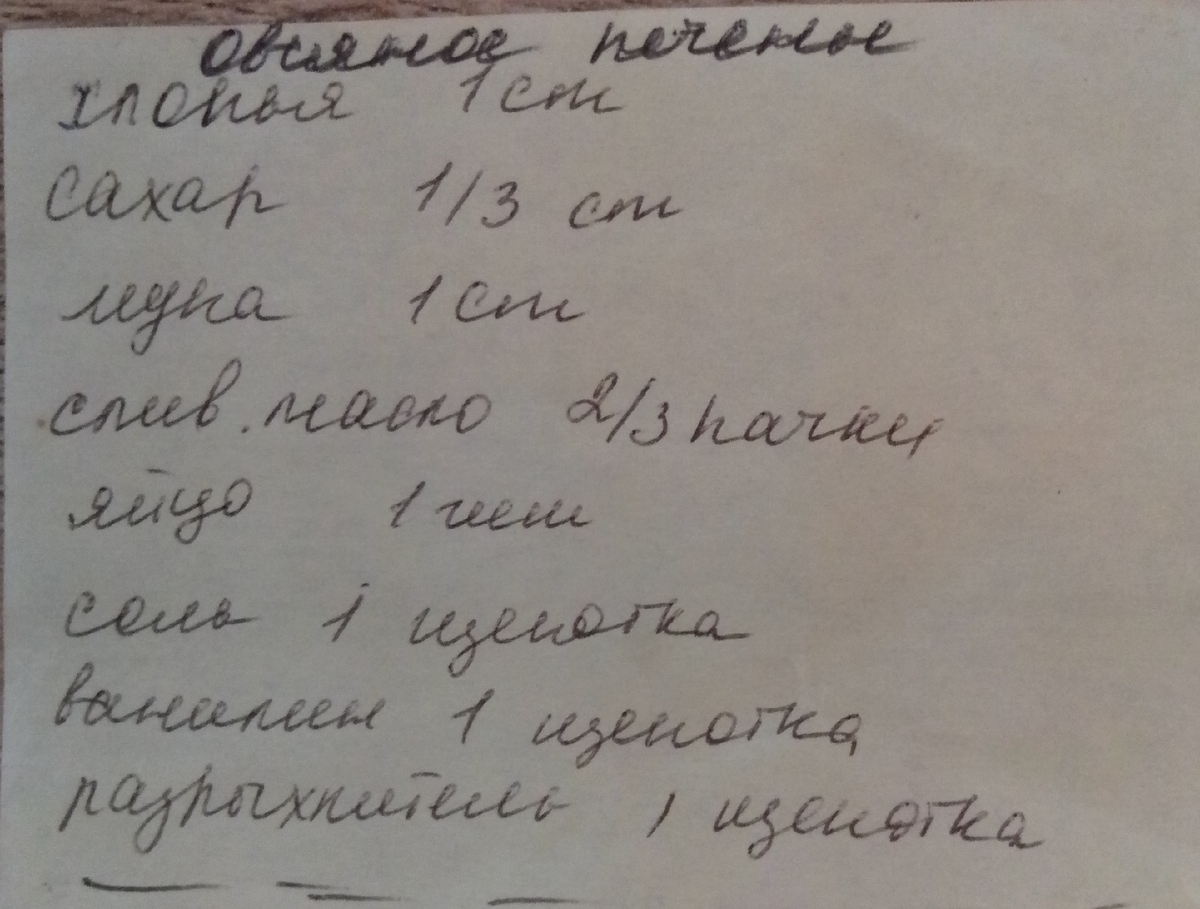 овсяное печенье
хлопья 1 ст
сахар 1/3 ст
мука 1 ст
слив. масло 2/3 пачки
яйцо 1 шт
соль 1 щепотка
ванилин 1 щепотка
разрыхлитель 1 щепотка